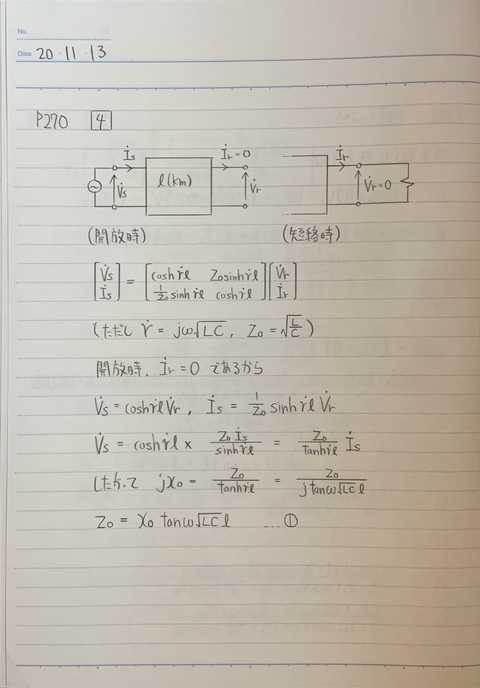 No.
Date 20・11・13
P270 [4]
İs İr=0 İr
V̇s l(km) V̇r V̇r=0
(開放時) (短絡時)
[V̇s İs] = [coshṙl Z₀sinhṙl 1/Z₀ sinhṙl coshṙl][V̇r İr]
(ただし ṙ = jω√LC, Z₀ = √(L/C))
開放時、İr = 0 であるから
V̇s = coshṙl V̇r, İs = 1/Z₀ sinhṙl V̇r
V̇s = coshṙl × Z₀İs/sinhṙl = Z₀/tanhṙl İs
したがって jx₀ = Z₀/tanhṙl = Z₀/(j tanω√LC l)
Z₀ = x₀ tanω√LC l ……①